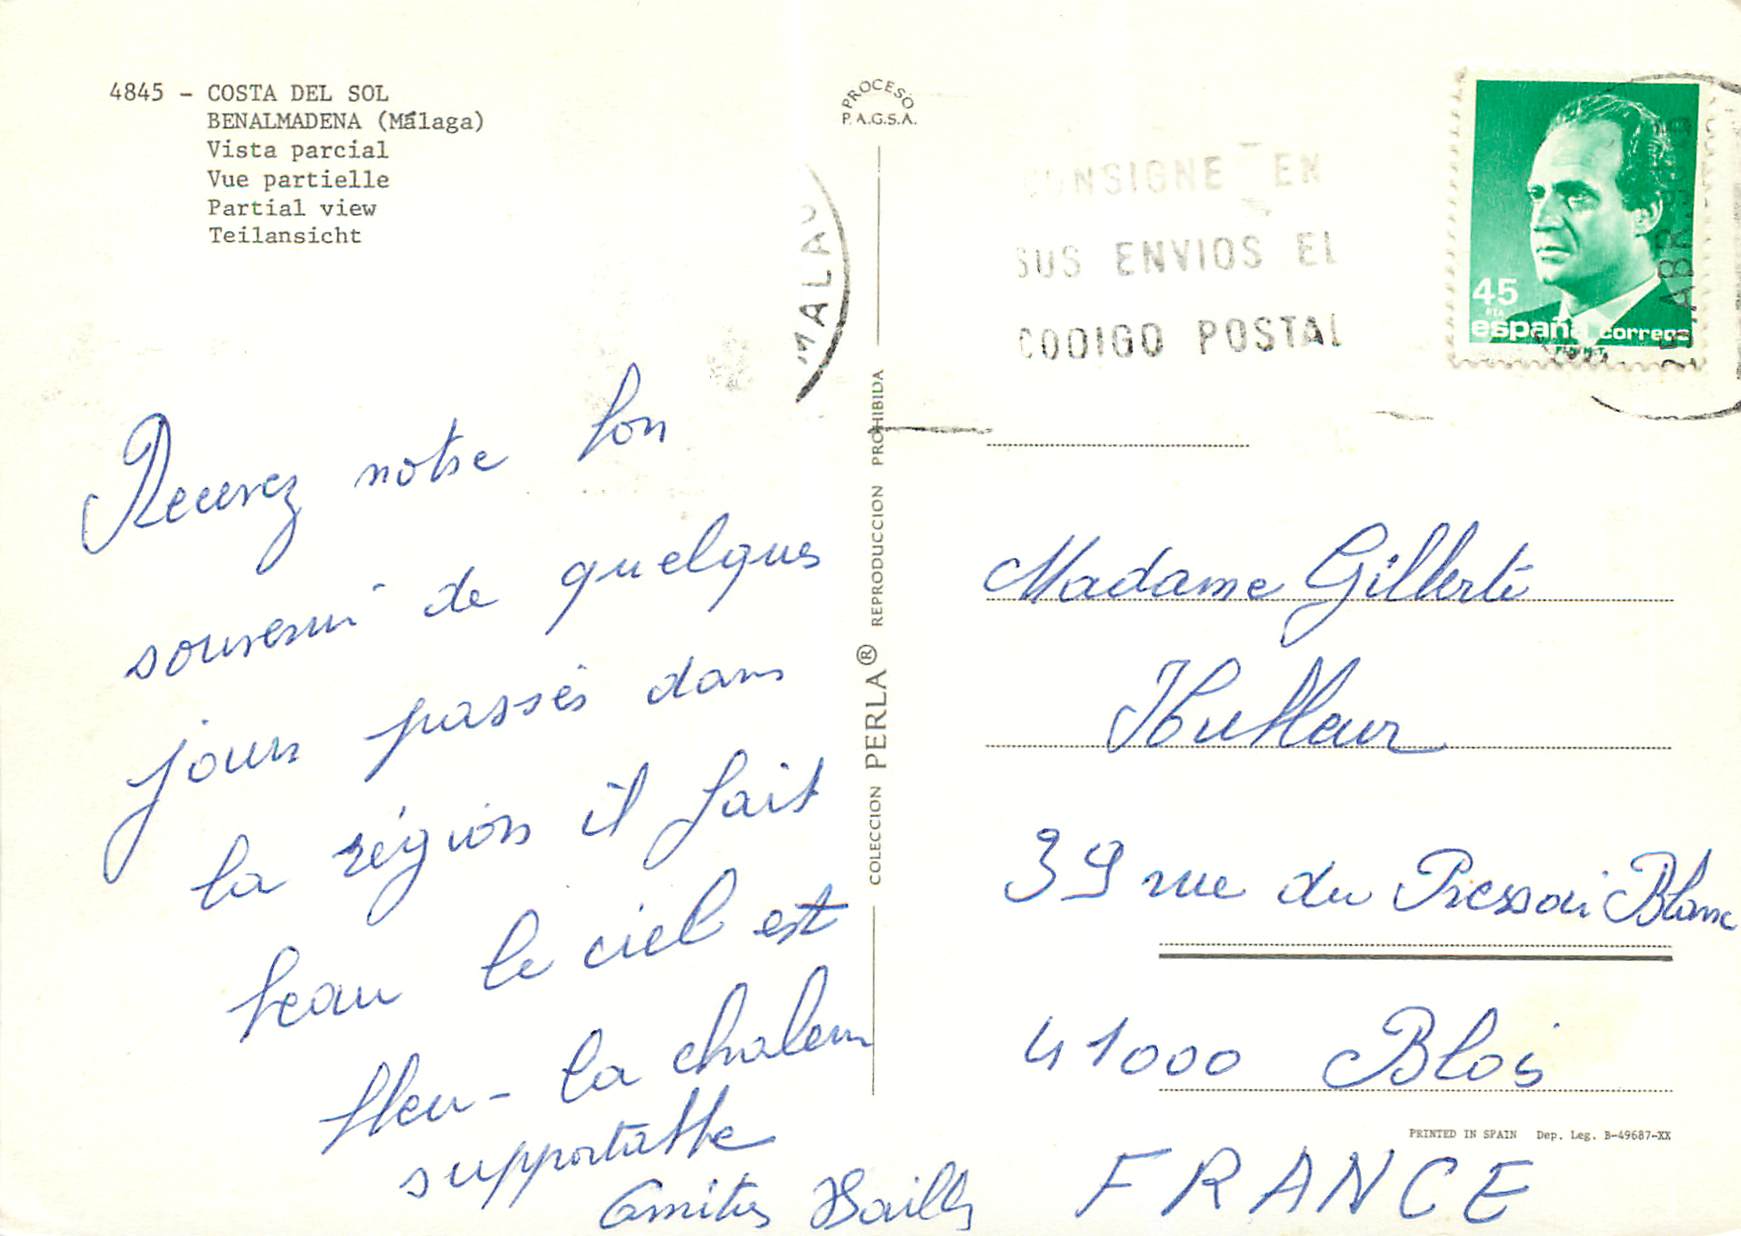 4845 - COSTA DEL SOL
BENALMADENA (Málaga)
Vista parcial
Vue partielle
Partial view
Teilansicht
PROCESO
P.A.G.S.A.
MALAG
CONSIGNE EN
SUS ENVIOS EL
CODIGO POSTAL
45
PTA
españa correos
F.N.M.T.
ABR
Recevez notre bon
souvenir de quelques
jours passés dans
la région il fait
beau le ciel est
bleu - la chaleur
supportable
Amitiés
COLECCION PERLA® REPRODUCCION PROHIBIDA
Madame Gilberte
39 rue du Pressoir Blanc
41000 Blois
FRANCE
PRINTED IN SPAIN Dep. Leg. B-49687-XX